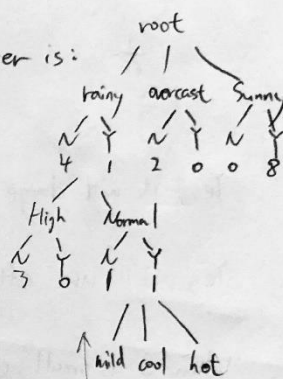 root
er is:
rainy overcast Sunny
N Y N Y N Y
4 1 2 0 0 8
High Normal
N Y N Y
3 0 1 1
mild cool hot